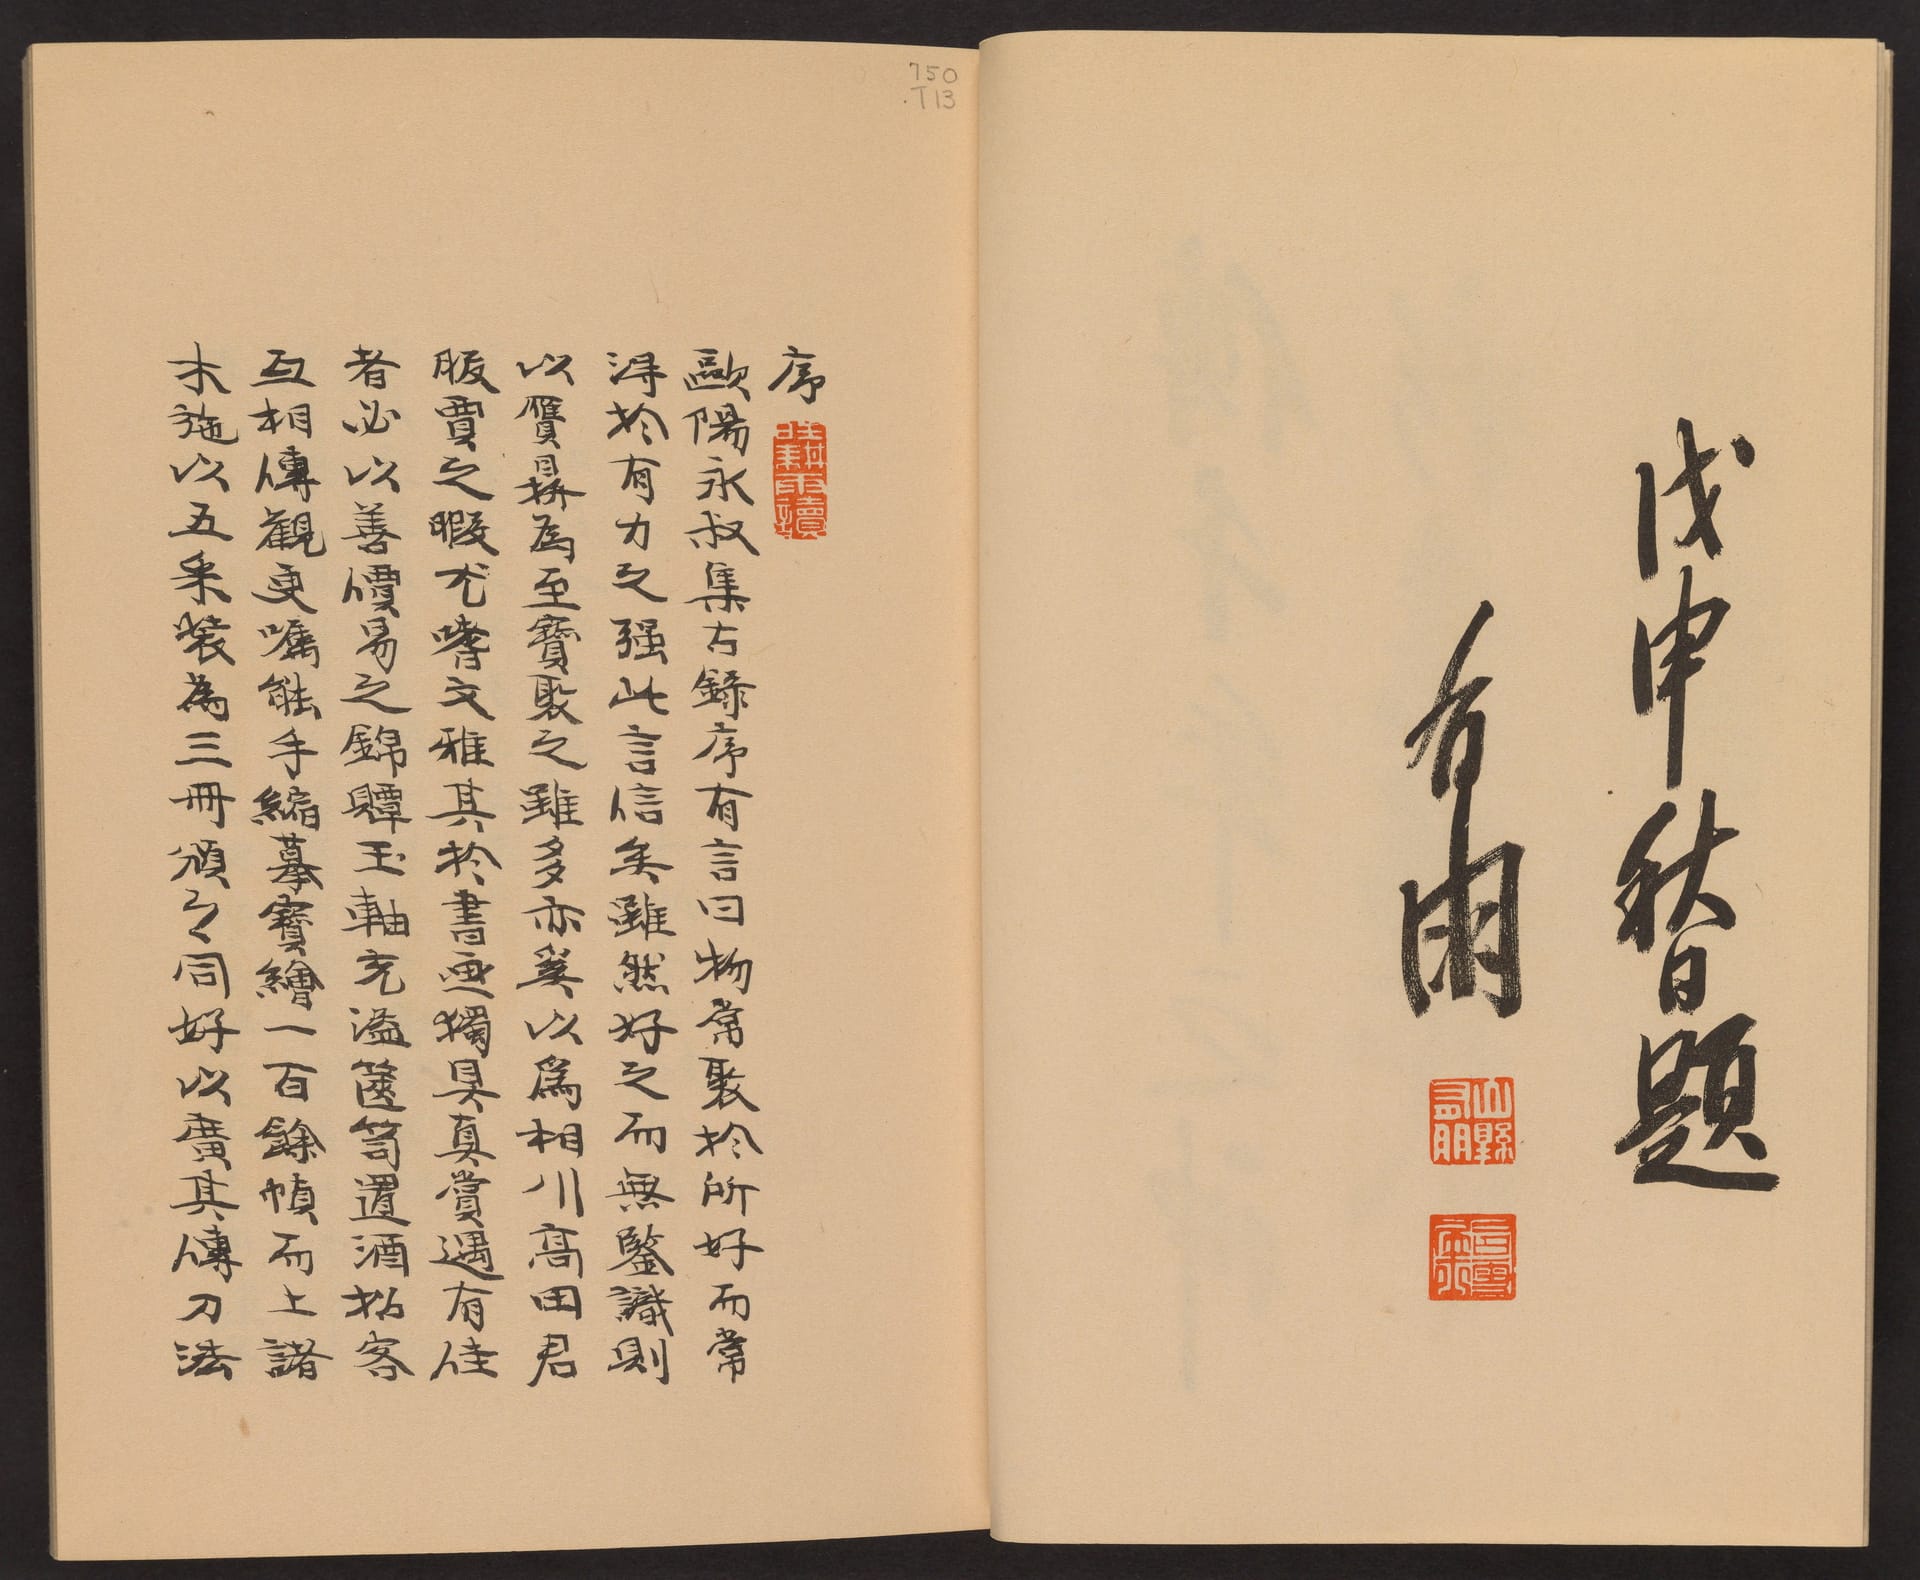 戊申秋日題
有朋
山縣有朋
序
歐陽永叔集古錄序有言曰物常聚於所好而常
得於有力之强此言信矣雖然好之而無鑒識則
以贋鼎為至寶聚之雖多亦奚以爲相川高田君
服賈之暇尤嗜文雅其於書画獨具真賞遇有佳
者必以善價易之錦贉玉軸充溢篋笥置酒招客
互相傳觀更囑能手縮摹寶繪一百餘幀而上諸
木施以五采裝為三冊頒之同好以廣其傳刀法
750
.T13